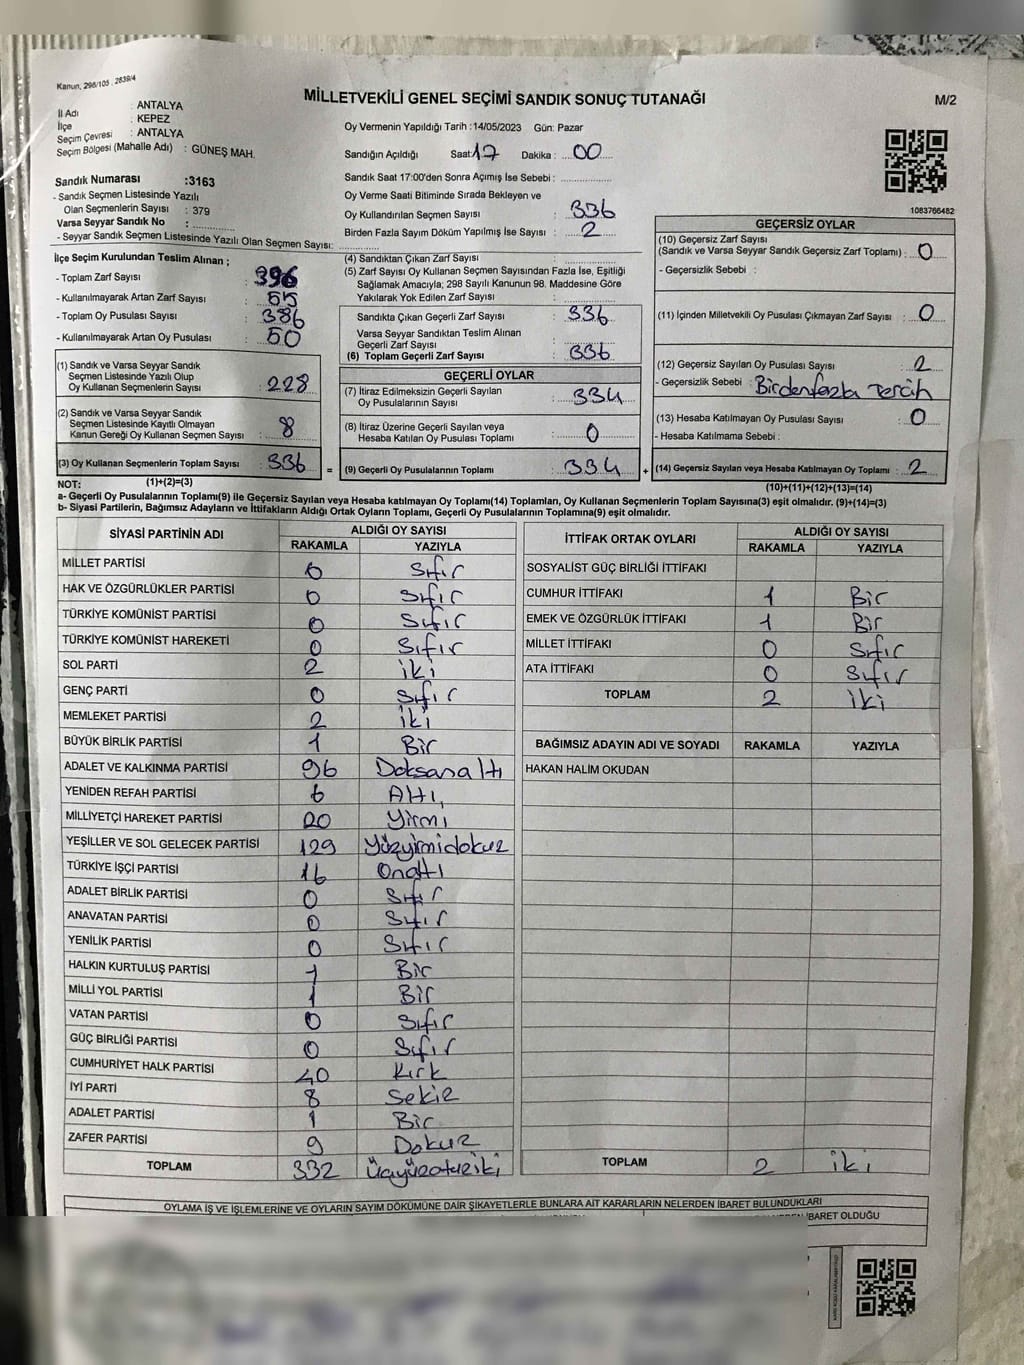 Kanun, 298/105 , 2839/4
MİLLETVEKİLİ GENEL SEÇİMİ SANDIK SONUÇ TUTANAĞI
M/2
İl Adı : ANTALYA
İlçe : KEPEZ
Seçim Çevresi : ANTALYA
Seçim Bölgesi (Mahalle Adı) : GÜNEŞ MAH.
Sandık Numarası :3163
- Sandık Seçmen Listesinde Yazılı
Olan Seçmenlerin Sayısı : 379
Varsa Seyyar Sandık No :
- Seyyar Sandık Seçmen Listesinde Yazılı Olan Seçmen Sayısı:
Oy Vermenin Yapıldığı Tarih :14/05/2023 Gün: Pazar
Sandığın Açıldığı Saat 17 Dakika : 00
Sandık Saat 17:00'den Sonra Açımış İse Sebebi :
Oy Verme Saati Bitiminde Sırada Bekleyen ve
Oy Kullandırılan Seçmen Sayısı : 336
Birden Fazla Sayım Döküm Yapılmış İse Sayısı : 2
1083766482
İlçe Seçim Kurulundan Teslim Alınan ;
- Toplam Zarf Sayısı : 396
- Kullanılmayarak Artan Zarf Sayısı :
- Toplam Oy Pusulası Sayısı : 386
- Kullanılmayarak Artan Oy Pusulası : 50
(1) Sandık ve Varsa Seyyar Sandık
Seçmen Listesinde Yazılı Olup
Oy Kullanan Seçmenlerin Sayısı : 228
(2) Sandık ve Varsa Seyyar Sandık
Seçmen Listesinde Kayıtlı Olmayan
Kanun Gereği Oy Kullanan Seçmen Sayısı : 8
(3) Oy Kullanan Seçmenlerin Toplam Sayısı : 336
(4) Sandıktan Çıkan Zarf Sayısı :
(5) Zarf Sayısı Oy Kullanan Seçmen Sayısından Fazla İse, Eşitliği
Sağlamak Amacıyla; 298 Sayılı Kanunun 98. Maddesine Göre
Yakılarak Yok Edilen Zarf Sayısı :
Sandıkta Çıkan Geçerli Zarf Sayısı : 336
Varsa Seyyar Sandıktan Teslim Alınan
Geçerli Zarf Sayısı :
(6) Toplam Geçerli Zarf Sayısı : 336
GEÇERLİ OYLAR
(7) İtiraz Edilmeksizin Geçerli Sayılan
Oy Pusulalarının Sayısı : 334
(8) İtiraz Üzerine Geçerli Sayılan veya
Hesaba Katılan Oy Pusulası Toplamı : 0
= (9) Geçerli Oy Pusulalarının Toplamı : 334 +
GEÇERSİZ OYLAR
(10) Geçersiz Zarf Sayısı
(Sandık ve Varsa Seyyar Sandık Geçersiz Zarf Toplamı) : 0
- Geçersizlik Sebebi :
(11) İçinden Milletvekili Oy Pusulası Çıkmayan Zarf Sayısı : 0
(12) Geçersiz Sayılan Oy Pusulası Sayısı : 2
- Geçersizlik Sebebi : Birdenfazla Tercih
(13) Hesaba Katılmayan Oy Pusulası Sayısı : 0
- Hesaba Katılmama Sebebi :
(14) Geçersiz Sayılan veya Hesaba Katılmayan Oy Toplamı : 2
NOT: (1)+(2)=(3)
(10)+(11)+(12)+(13)=(14)
a- Geçerli Oy Pusulalarının Toplamı(9) ile Geçersiz Sayılan veya Hesaba katılmayan Oy Toplamı(14) Toplamları, Oy Kullanan Seçmenlerin Toplam Sayısına(3) eşit olmalıdır. (9)+(14)=(3)
b- Siyasi Partilerin, Bağımsız Adayların ve İttifakların Aldığı Ortak Oyların Toplamı, Geçerli Oy Pusulalarının Toplamına(9) eşit olmalıdır.
SİYASİ PARTİNİN ADI ALDIĞI OY SAYISI
RAKAMLA YAZIYLA
MİLLET PARTİSİ 0 Sıfır
HAK VE ÖZGÜRLÜKLER PARTİSİ 0 Sıfır
TÜRKİYE KOMÜNİST PARTİSİ 0 Sıfır
TÜRKİYE KOMÜNİST HAREKETİ 0 Sıfır
SOL PARTİ 2 iki
GENÇ PARTİ 0 Sıfır
MEMLEKET PARTİSİ 2 iki
BÜYÜK BİRLİK PARTİSİ 1 Bir
ADALET VE KALKINMA PARTİSİ 96 Doksanaltı
YENİDEN REFAH PARTİSİ 6 Altı
MİLLİYETÇİ HAREKET PARTİSİ 20 Yirmi
YEŞİLLER VE SOL GELECEK PARTİSİ 129 Yüzyirmidokuz
TÜRKİYE İŞÇİ PARTİSİ 16 Onaltı
ADALET BİRLİK PARTİSİ 0 Sıfır
ANAVATAN PARTİSİ 0 Sıfır
YENİLİK PARTİSİ 0 Sıfır
HALKIN KURTULUŞ PARTİSİ 1 Bir
MİLLİ YOL PARTİSİ 1 Bir
VATAN PARTİSİ 0 Sıfır
GÜÇ BİRLİĞİ PARTİSİ 0 Sıfır
CUMHURİYET HALK PARTİSİ 40 Kırk
İYİ PARTİ 8 Sekiz
ADALET PARTİSİ 1 Bir
ZAFER PARTİSİ 9 Dokuz
TOPLAM 332 Üçyüzotuziki
İTTİFAK ORTAK OYLARI ALDIĞI OY SAYISI
RAKAMLA YAZIYLA
SOSYALİST GÜÇ BİRLİĞİ İTTİFAKI
CUMHUR İTTİFAKI 1 Bir
EMEK VE ÖZGÜRLÜK İTTİFAKI 1 Bir
MİLLET İTTİFAKI 0 Sıfır
ATA İTTİFAKI 0 Sıfır
TOPLAM 2 iki
BAĞIMSIZ ADAYIN ADI VE SOYADI RAKAMLA YAZIYLA
HAKAN HALİM OKUDAN
TOPLAM 2 iki
OYLAMA İŞ VE İŞLEMLERİNE VE OYLARIN SAYIM DÖKÜMÜNE DAİR ŞİKAYETLERLE BUNLARA AİT KARARLARIN NELERDEN İBARET BULUNDUKLARI
İBARET OLDUĞU